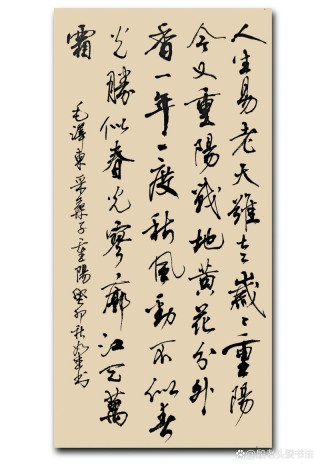 人生易老天難老歲〻重陽
今又重陽戰地黃花分外
香一年一度秋風勁不似春
光勝似春光寥廓江天萬
霜
毛澤東采桑子重陽癸卯秋書
老头爱书法